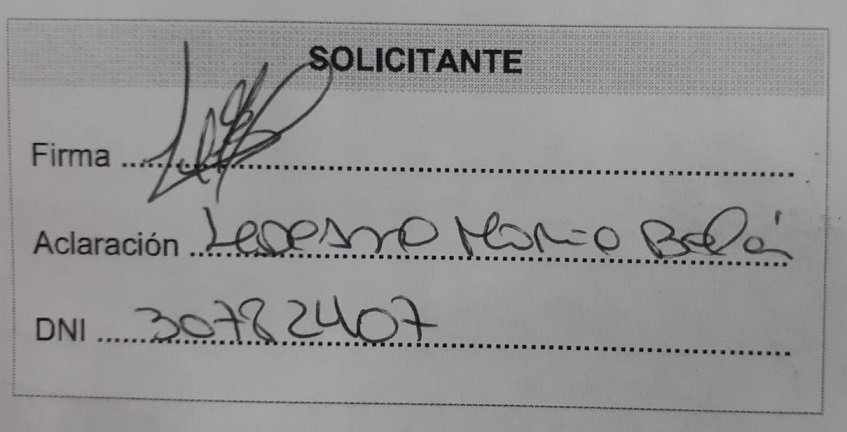 SOLICITANTE
Firma
Aclaración Ledesma Maria Belén
DNI 30782407